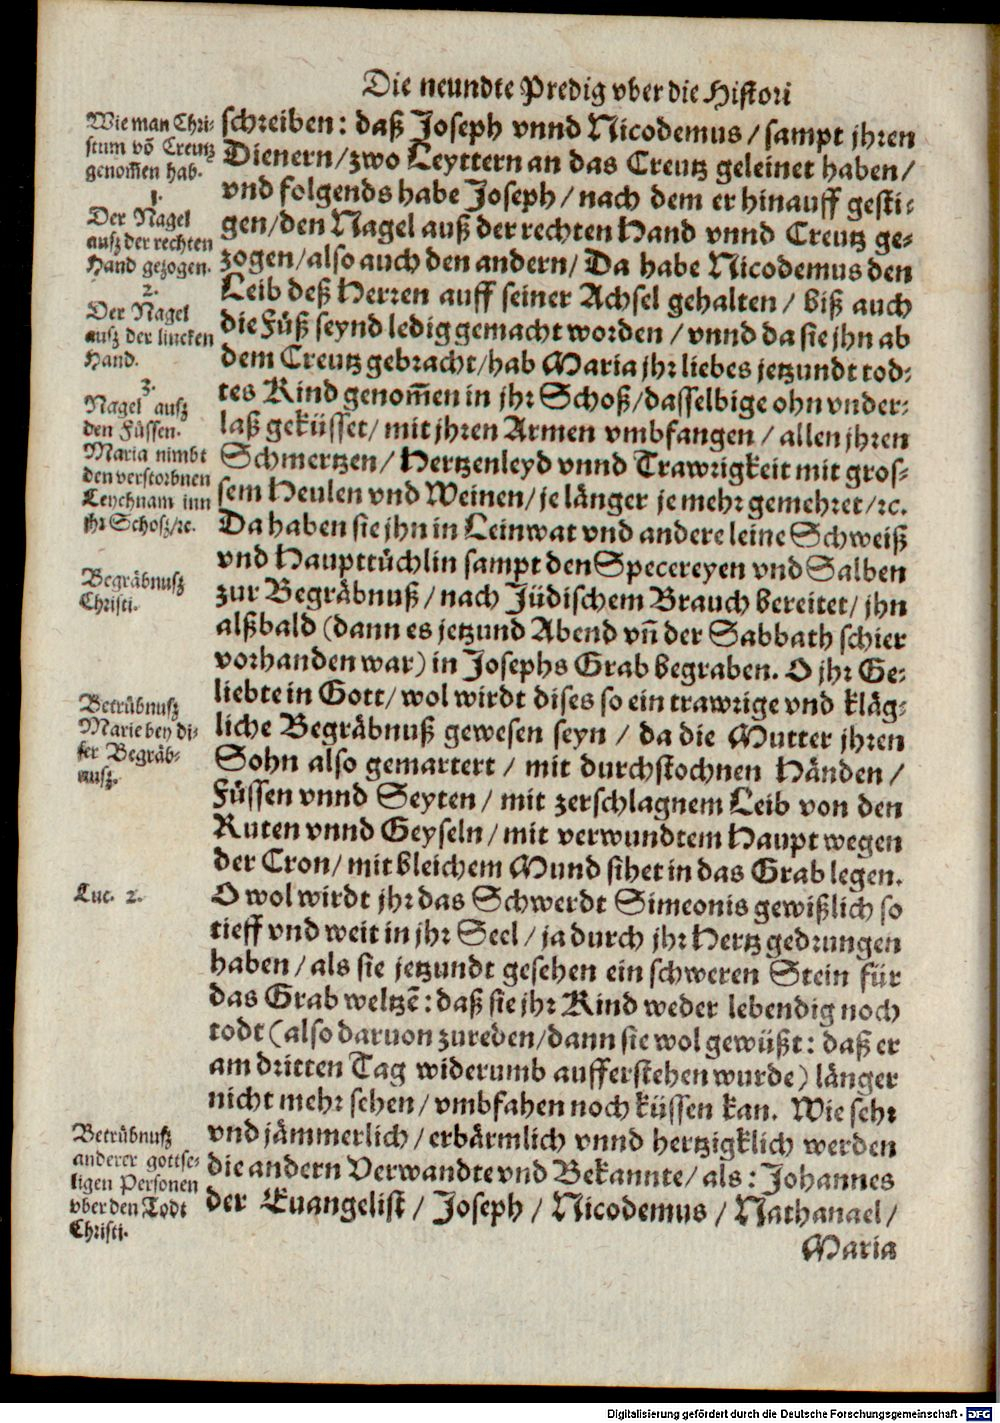 Die neundte Predig vber die Histori
Wie man Chri-
stum võ Creutz
genom̃en hab.
1.
Der Nagel
ausz der rechten
Hand gezogen.
2.
Der Nagel
ausz der lincken
Hand.
3.
Nagel ausz
den Füssen.
Maria nimbt
den verstorbnen
Leychnam inn
jhr Schosz/ꝛc.
Begräbnusz
Christi.
Betrübnusz
Marie bey di-
ser Begräb-
nusz.
Luc. 2.
Betrübnusz
anderer gottse-
ligen Personen
vber den Todt
Christi.
schreiben: daß Joseph vnnd Nicodemus / sampt jhren
Dienern/zwo Leyttern an das Creutz geleinet haben/
vnd folgends habe Joseph / nach dem er hinauff gesti-
gen/den Nagel auß der rechten Hand vnnd Creutz ge-
zogen/also auch den andern/ Da habe Nicodemus den
Leib deß Herren auff seiner Achsel gehalten / biß auch
die Füß seynd ledig gemacht worden / vnnd da sie jhn ab
dem Creutz gebracht/hab Maria jhr liebes jetzundt tod-
tes Kind genom̃en in jhr Schoß/dasselbige ohn vnder-
laß geküsset/ mit jhren Armen vmbfangen / allen jhren
Schmertzen/ Hertzenleyd vnnd Trawrigkeit mit gros-
sem Heulen vnd Weinen/ je länger je mehr gemehret/ꝛc.
Da haben sie jhn in Leinwat vnd andere leine Schweiß
vnd Haupttüchlin sampt den Specereyen vnd Salben
zur Begräbnuß / nach Jüdischem Brauch bereitet/ jhn
alßbald (dann es jetzund Abend vñ der Sabbath schier
vorhanden war) in Josephs Grab begraben. O jhr Ge-
liebte in Gott/ wol wirdt dises so ein trawrige vnd kläg-
liche Begräbnuß gewesen seyn / da die Mutter jhren
Sohn also gemartert / mit durchstochnen Händen /
Füssen vnnd Seyten / mit zerschlagnem Leib von den
Ruten vnnd Geyseln/ mit verwundtem Haupt wegen
der Cron/ mit bleichem Mund sihet in das Grab legen.
O wol wirdt jhr das Schwerdt Simeonis gewißlich so
tieff vnd weit in jhr Seel / ja durch jhr Hertz gedrungen
haben / als sie jetzundt gesehen ein schweren Stein für
das Grab weltzẽ: daß sie jhr Kind weder lebendig noch
todt (also daruon zureden/dann sie wol gewüßt: daß er
am dritten Tag widerumb aufferstehen wurde) länger
nicht mehr sehen/ vmbfahen noch küssen kan. Wie sehr
vnd jämmerlich/ erbärmlich vnnd hertzigklich werden
die andern Verwandte vnd Bekannte/ als: Johannes
der Euangelist / Joseph / Nicodemus / Nathanael /
Maria
Digitalisierung gefördert durch die Deutsche Forschungsgemeinschaft - DFG